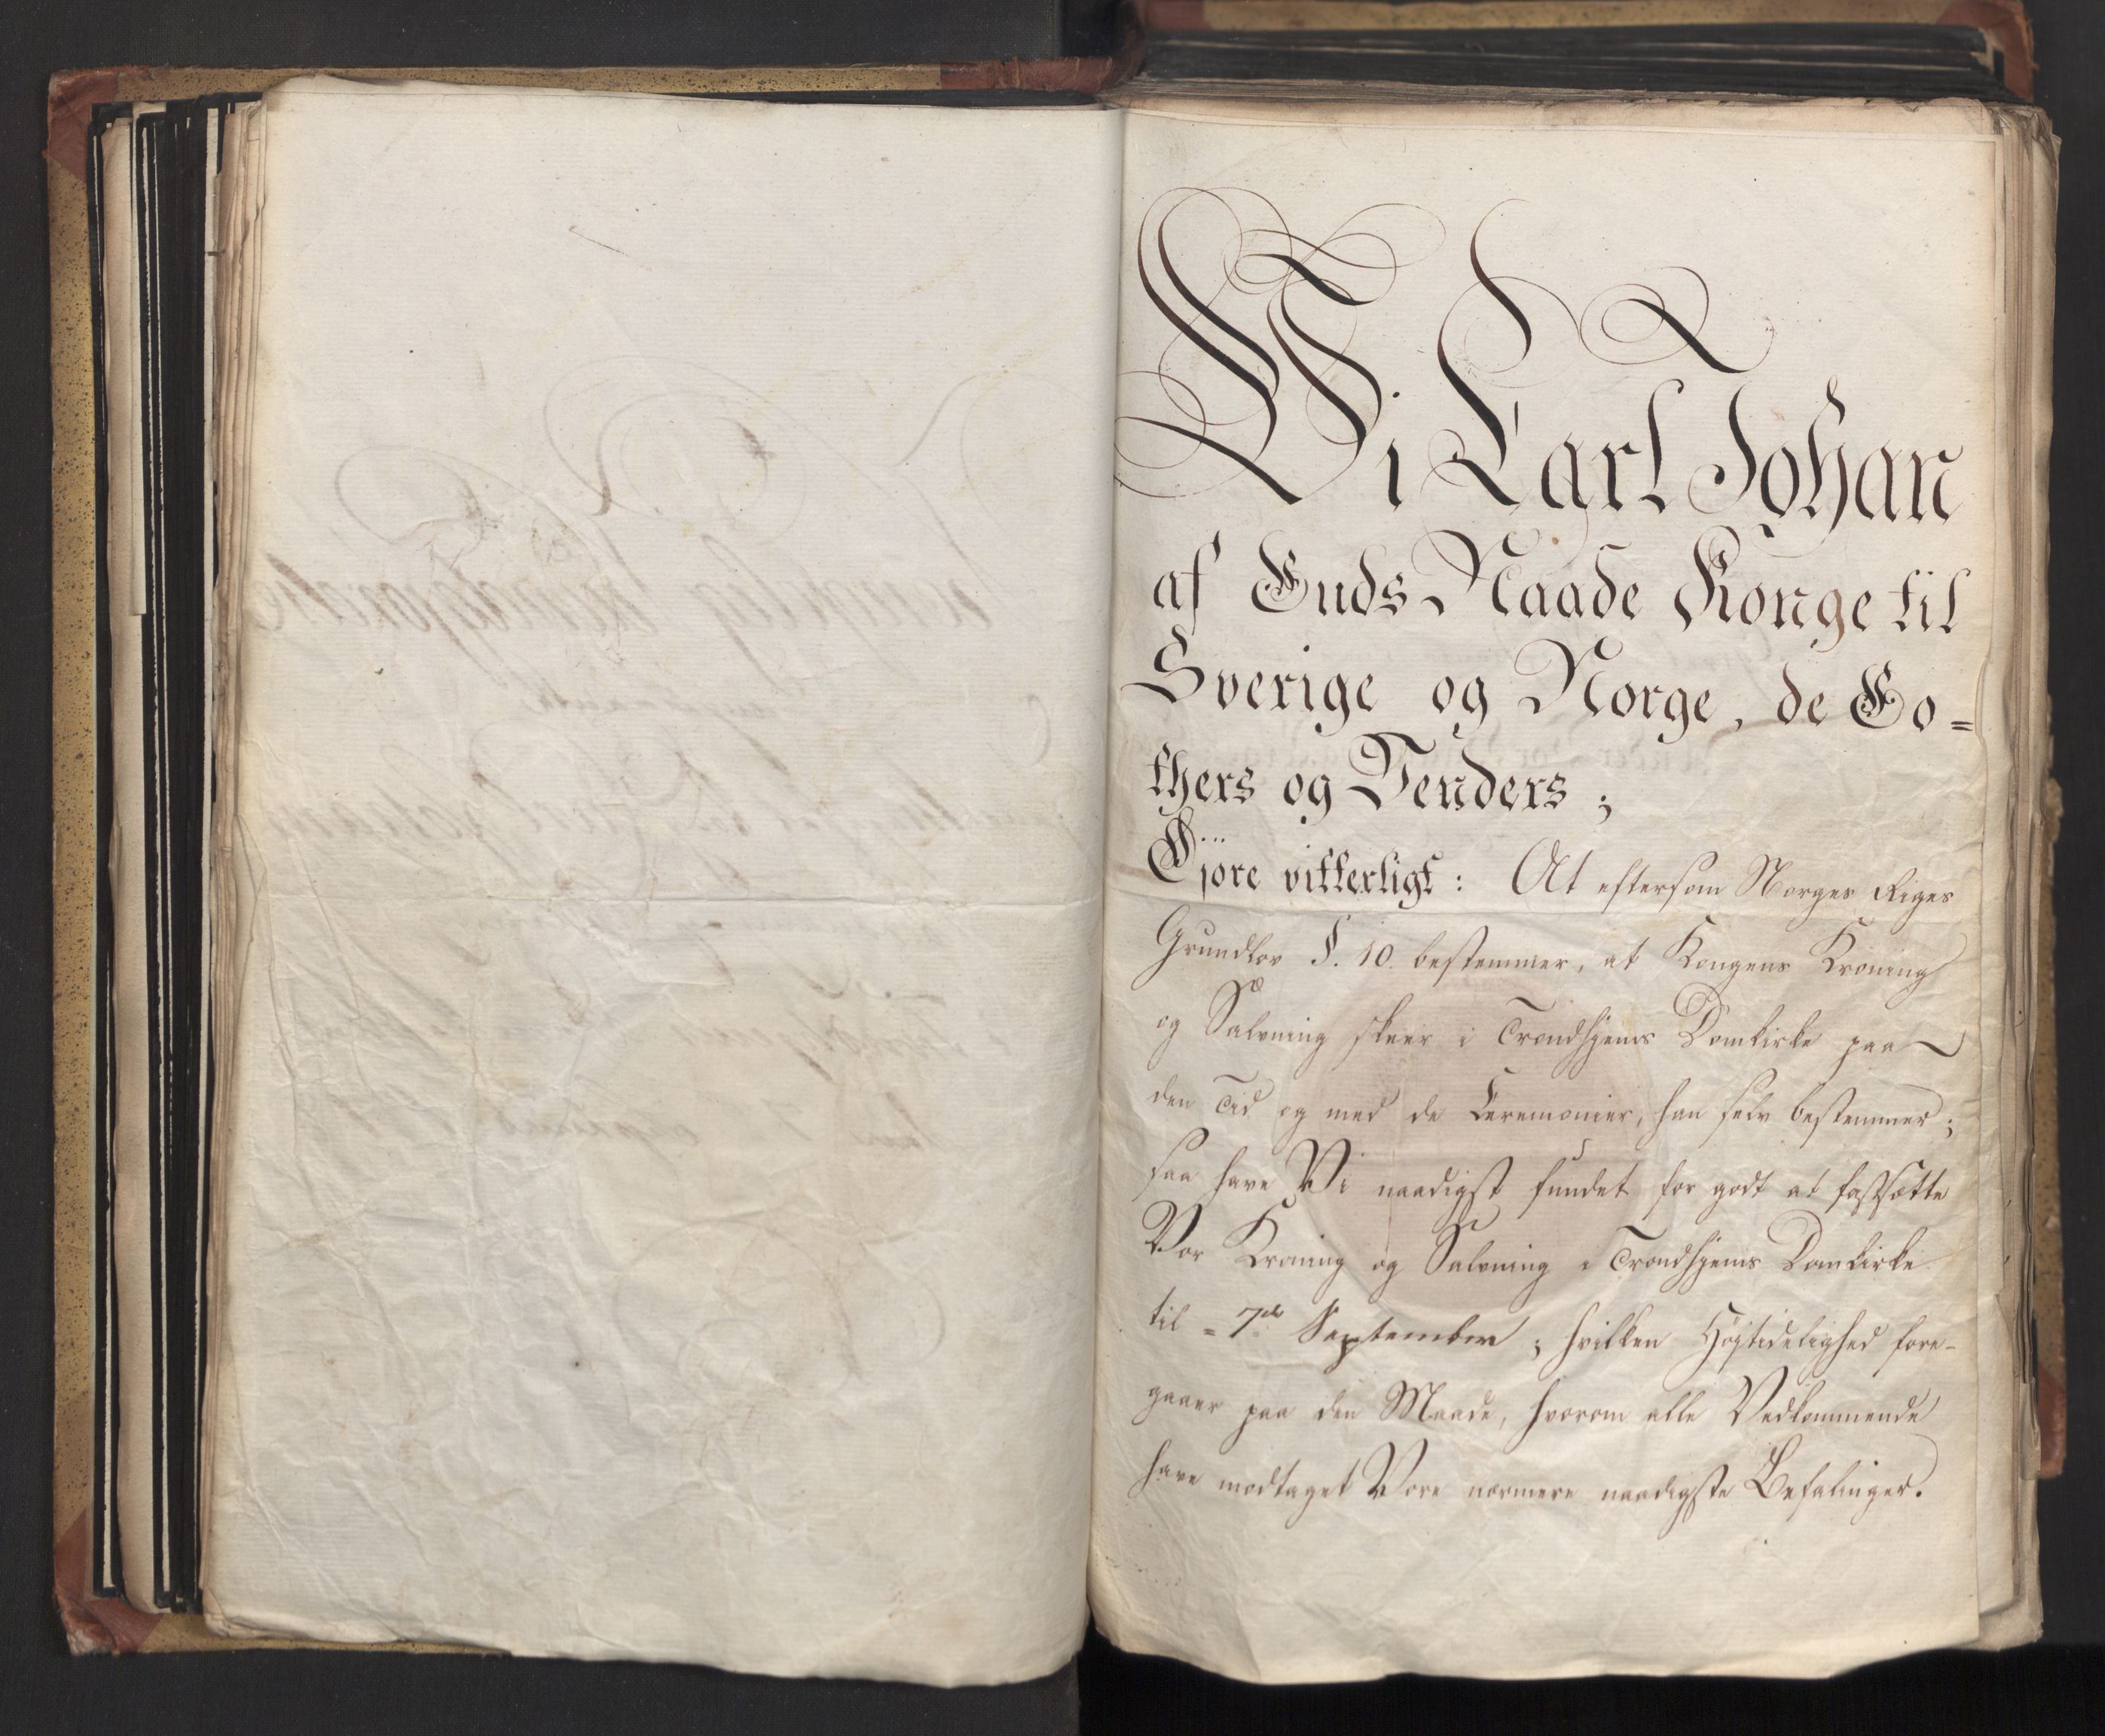 Vi Carl Johan
af Guds Naade Konge til
Sverige og Norge, de Go=
thers og Venders;
Gjöre vitterligt: At eftersom Norges Riges
Grundlov §. 10. bestemmer, at Kongens Kroning
og Salvning skeer i Trondhjems Domkirke paa
den Tid og med de Ceremonier, han selv bestemmer;
saa have Vi naadigst fundet for godt at fastsætte
Vor Kroning og Salvning i Trondhjems Domkirke
til = 7de September; hvilken Højtidelighed fore-
gaaer paa den Maade, hvorom alle Vedkommende
have modtaget Vore nærmere naadigste Befalinger.